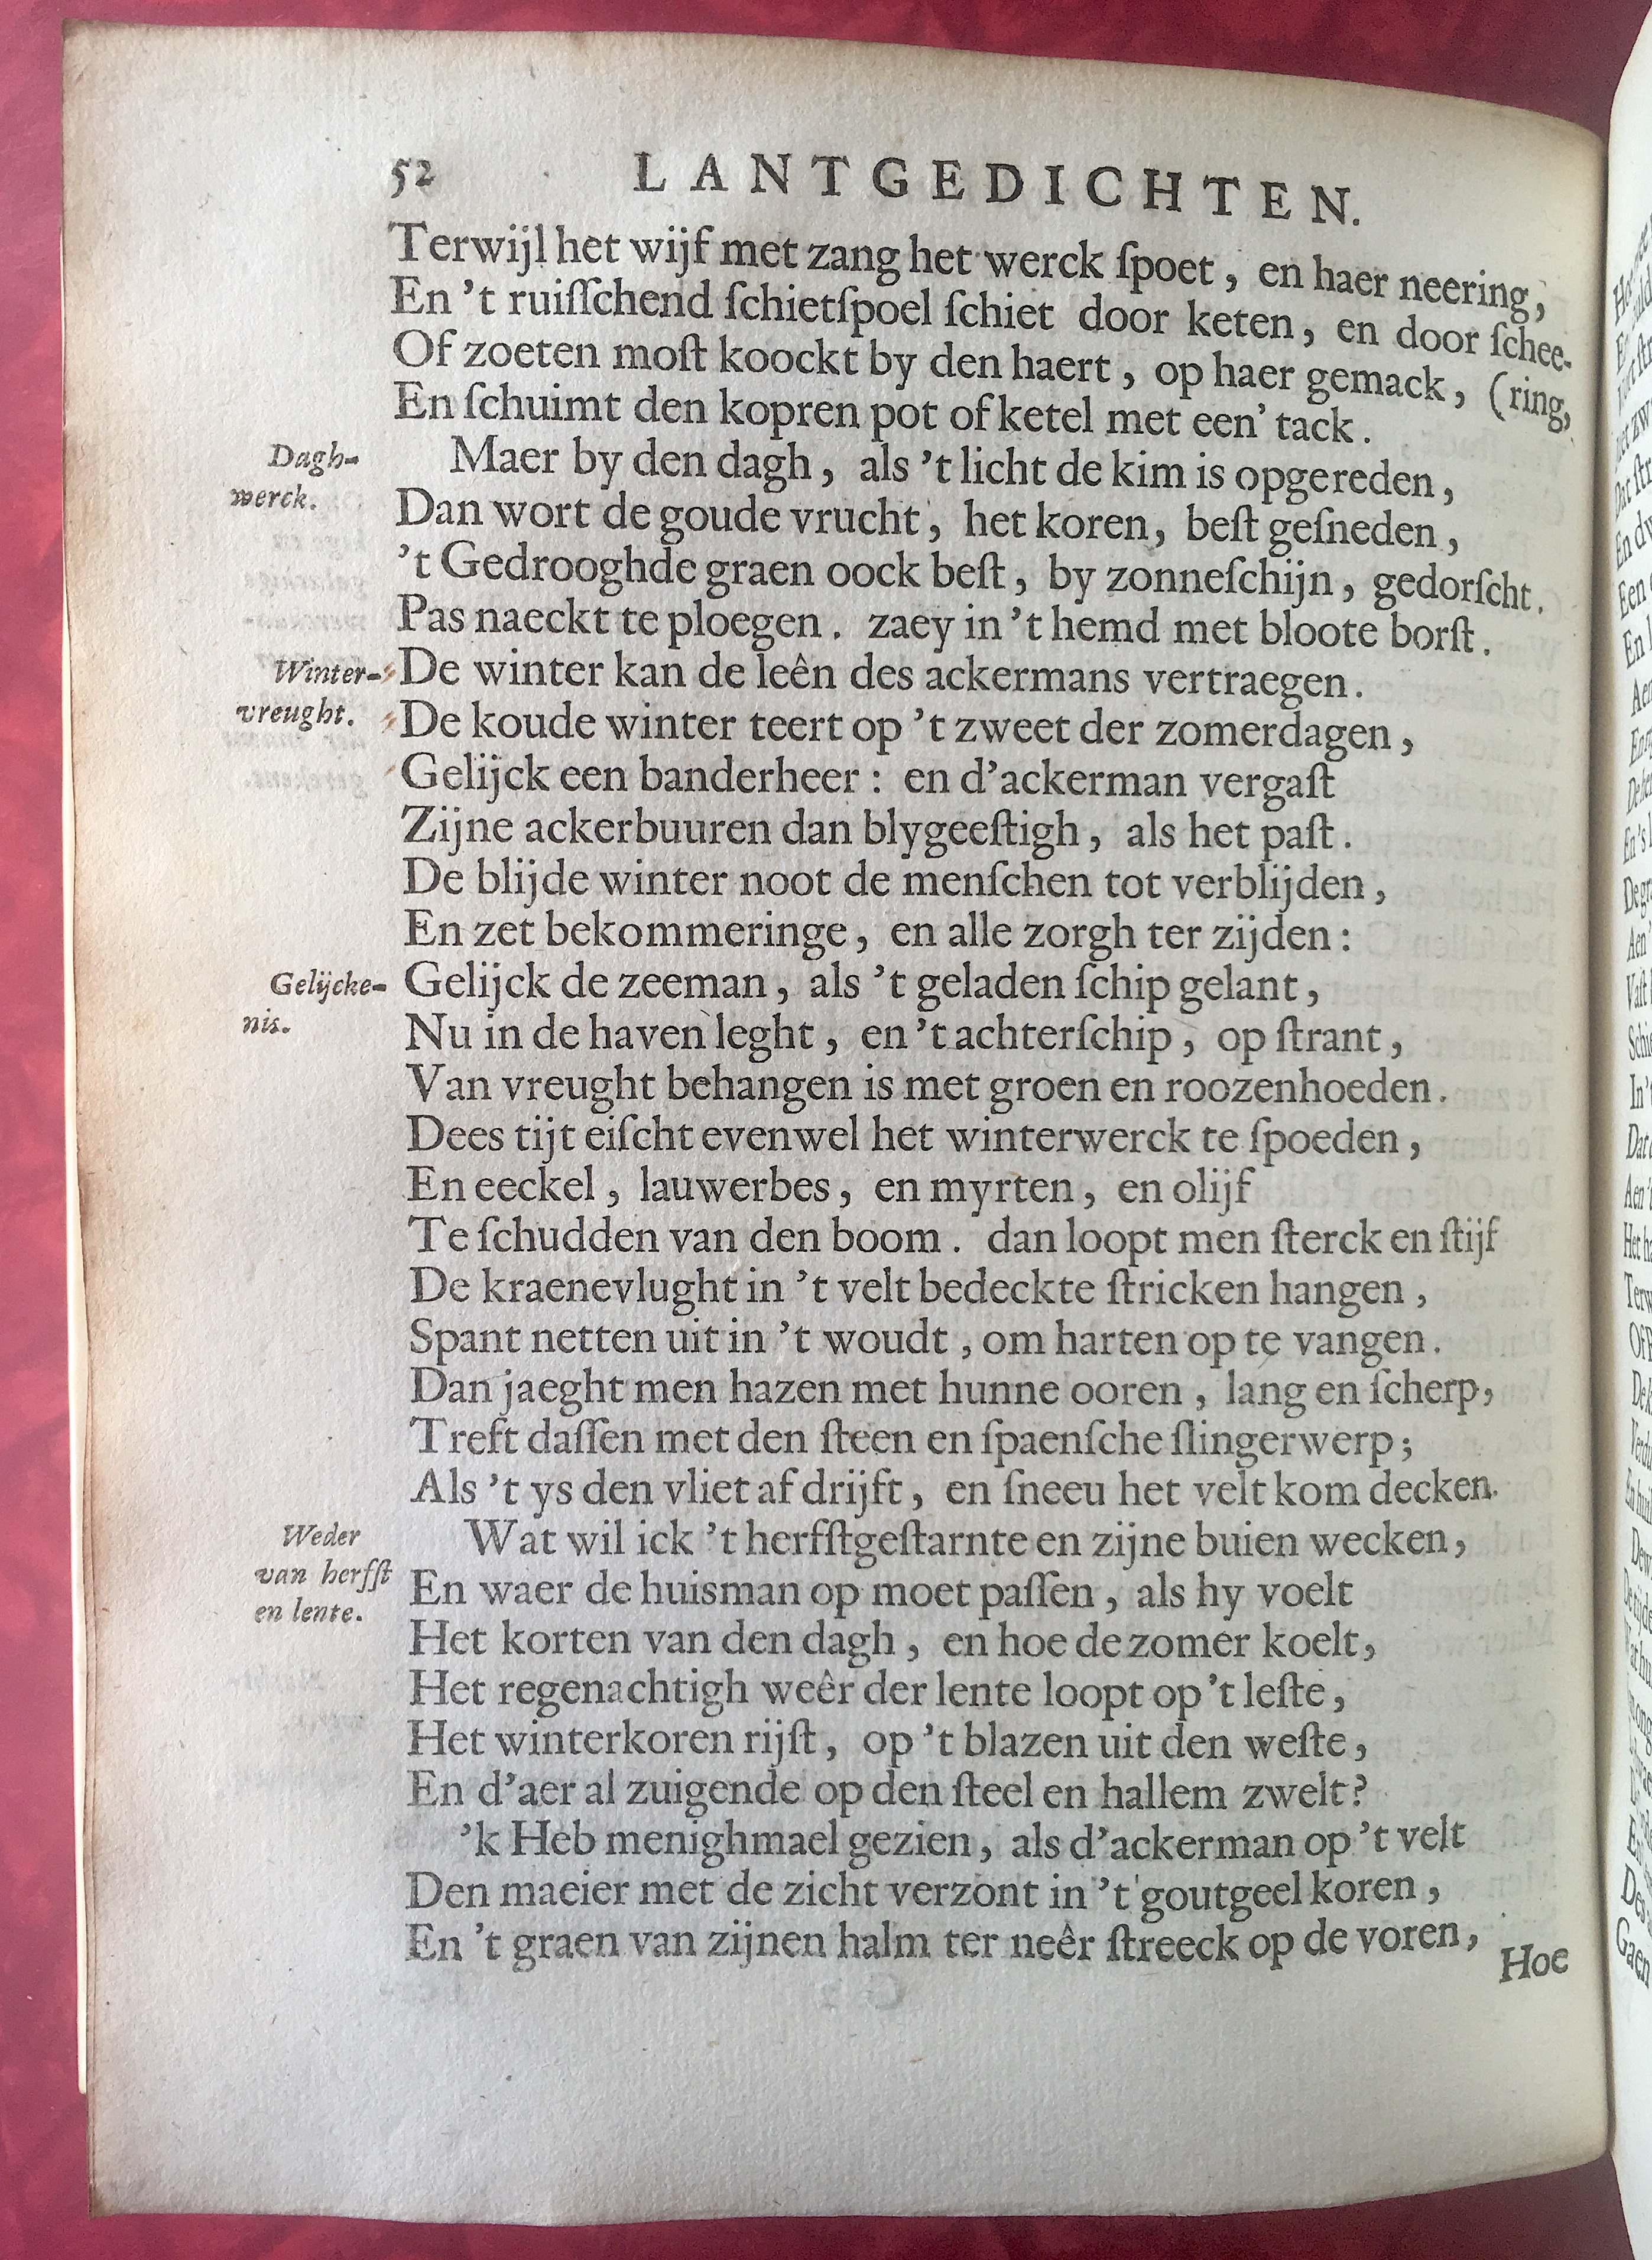 52 LANTGEDICHTEN.
Terwijl het wijf met zang het werck ſpoet, en haer neering,
En 't ruiſſchend ſchietſpoel ſchiet door keten, en door ſchee-
Of zoeten moſt koockt by den haert, op haer gemack, (ring,
En ſchuimt den kopren pot of ketel met een' tack.
Dagh-
werck.
Maer by den dagh, als 't licht de kim is opgereden,
Dan wort de goude vrucht, het koren, beſt geſneden,
't Gedrooghde graen oock beſt, by zonneſchijn, gedorſcht.
Pas naeckt te ploegen. zaey in 't hemd met bloote borſt.
Winter-
vreught.
De winter kan de leên des ackermans vertraegen.
De koude winter teert op 't zweet der zomerdagen,
Gelijck een banderheer: en d'ackerman vergaſt
Zijne ackerbuuren dan blygeeſtigh, als het paſt.
De blijde winter noot de menſchen tot verblijden,
En zet bekommeringe, en alle zorgh ter zijden:
Gelijcke-
nis.
Gelijck de zeeman, als 't geladen ſchip gelant,
Nu in de haven leght, en 't achterſchip, op ſtrant,
Van vreught behangen is met groen en roozenhoeden.
Dees tijt eiſcht evenwel het winterwerck te ſpoeden,
En eeckel, lauwerbes, en myrten, en olijf
Te ſchudden van den boom. dan loopt men ſterck en ſtijf
De kraenevlught in 't velt bedeckte ſtricken hangen,
Spant netten uit in 't woudt, om harten op te vangen.
Dan jaeght men hazen met hunne ooren, lang en ſcherp,
Treft daſſen met den ſteen en ſpaenſche ſlingerwerp;
Als 't ys den vliet af drijft, en ſneeu het velt kom decken.
Weder
van herfſt
en lente.
Wat wil ick 't herfſtgeſtarnte en zijne buien wecken,
En waer de huisman op moet paſſen, als hy voelt
Het korten van den dagh, en hoe de zomer koelt,
Het regenachtigh weêr der lente loopt op 't leſte,
Het winterkoren rijſt, op 't blazen uit den weſte,
En d'aer al zuigende op den ſteel en hallem zwelt?
'k Heb menighmael gezien, als d'ackerman op 't velt
Den maeier met de zicht verzont in 't goutgeel koren,
En 't graen van zijnen halm ter neêr ſtreeck op de voren,
Hoe